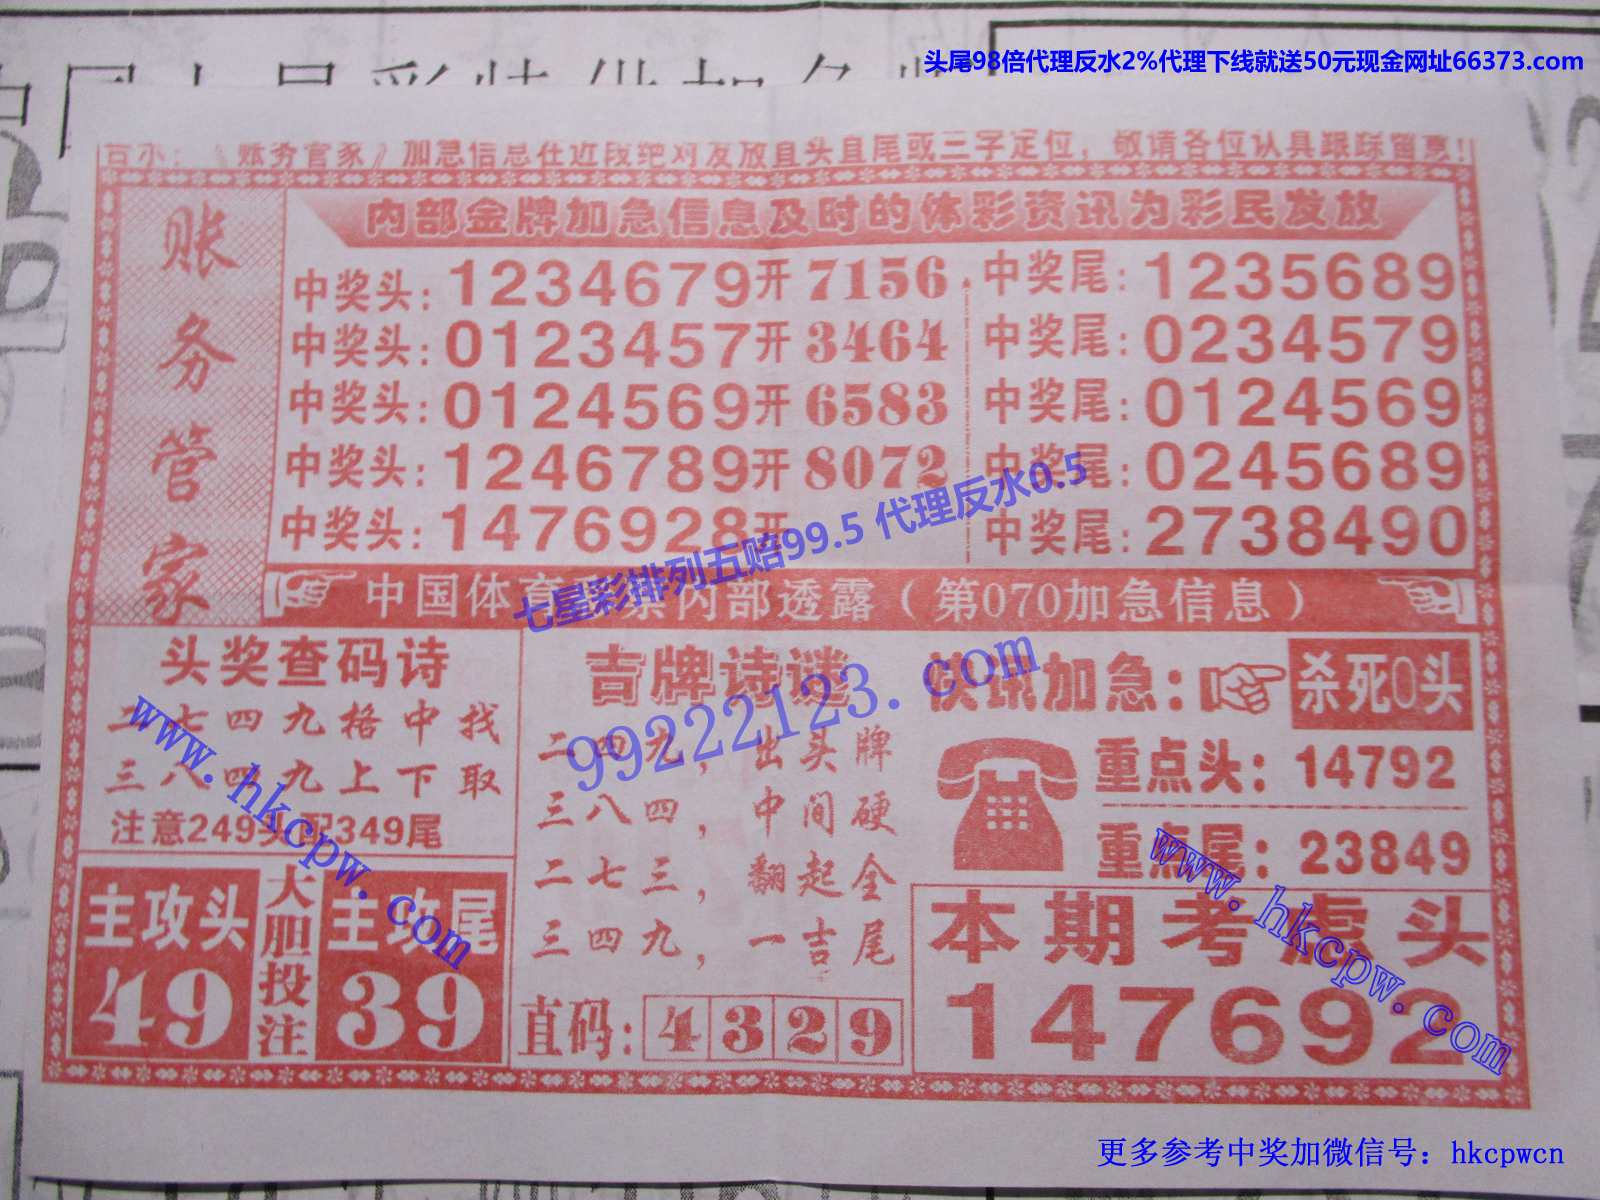 头尾98倍代理反水2%代理下线就送50元现金网址66373.com
《账务管家》加急信息在近段绝对发放直头直尾或三字定位，敬请各位认真跟踪留意！
账务管家
内部金牌加急信息及时的体彩资讯为彩民发放
中奖头：1234679开7156 中奖尾：1235689
中奖头：0123457开3464 中奖尾：0234579
中奖头：0124569开6583 中奖尾：0124569
中奖头：1246789开8072 中奖尾：0245689
中奖头：1476928开 中奖尾：2738490
七星彩排列五赔99.5 代理反水0.5
中国体育 内部透露（第070加急信息）
头奖查码诗
二七四九格中找
三八四九上下取
注意249头配349尾
主攻头
49
大胆投注
主攻尾
39
www.hkcpw.com
吉牌诗谜
二四九，出头牌
三八四，中间硬
二七三，翻起全
三四九，一吉尾
直码：4329
99222123.com
快讯加急：杀死0头
重点头：14792
重点尾：23849
本期考虑头
147692
www.hkcpw.com
更多参考中奖加微信号：hkcpwcn